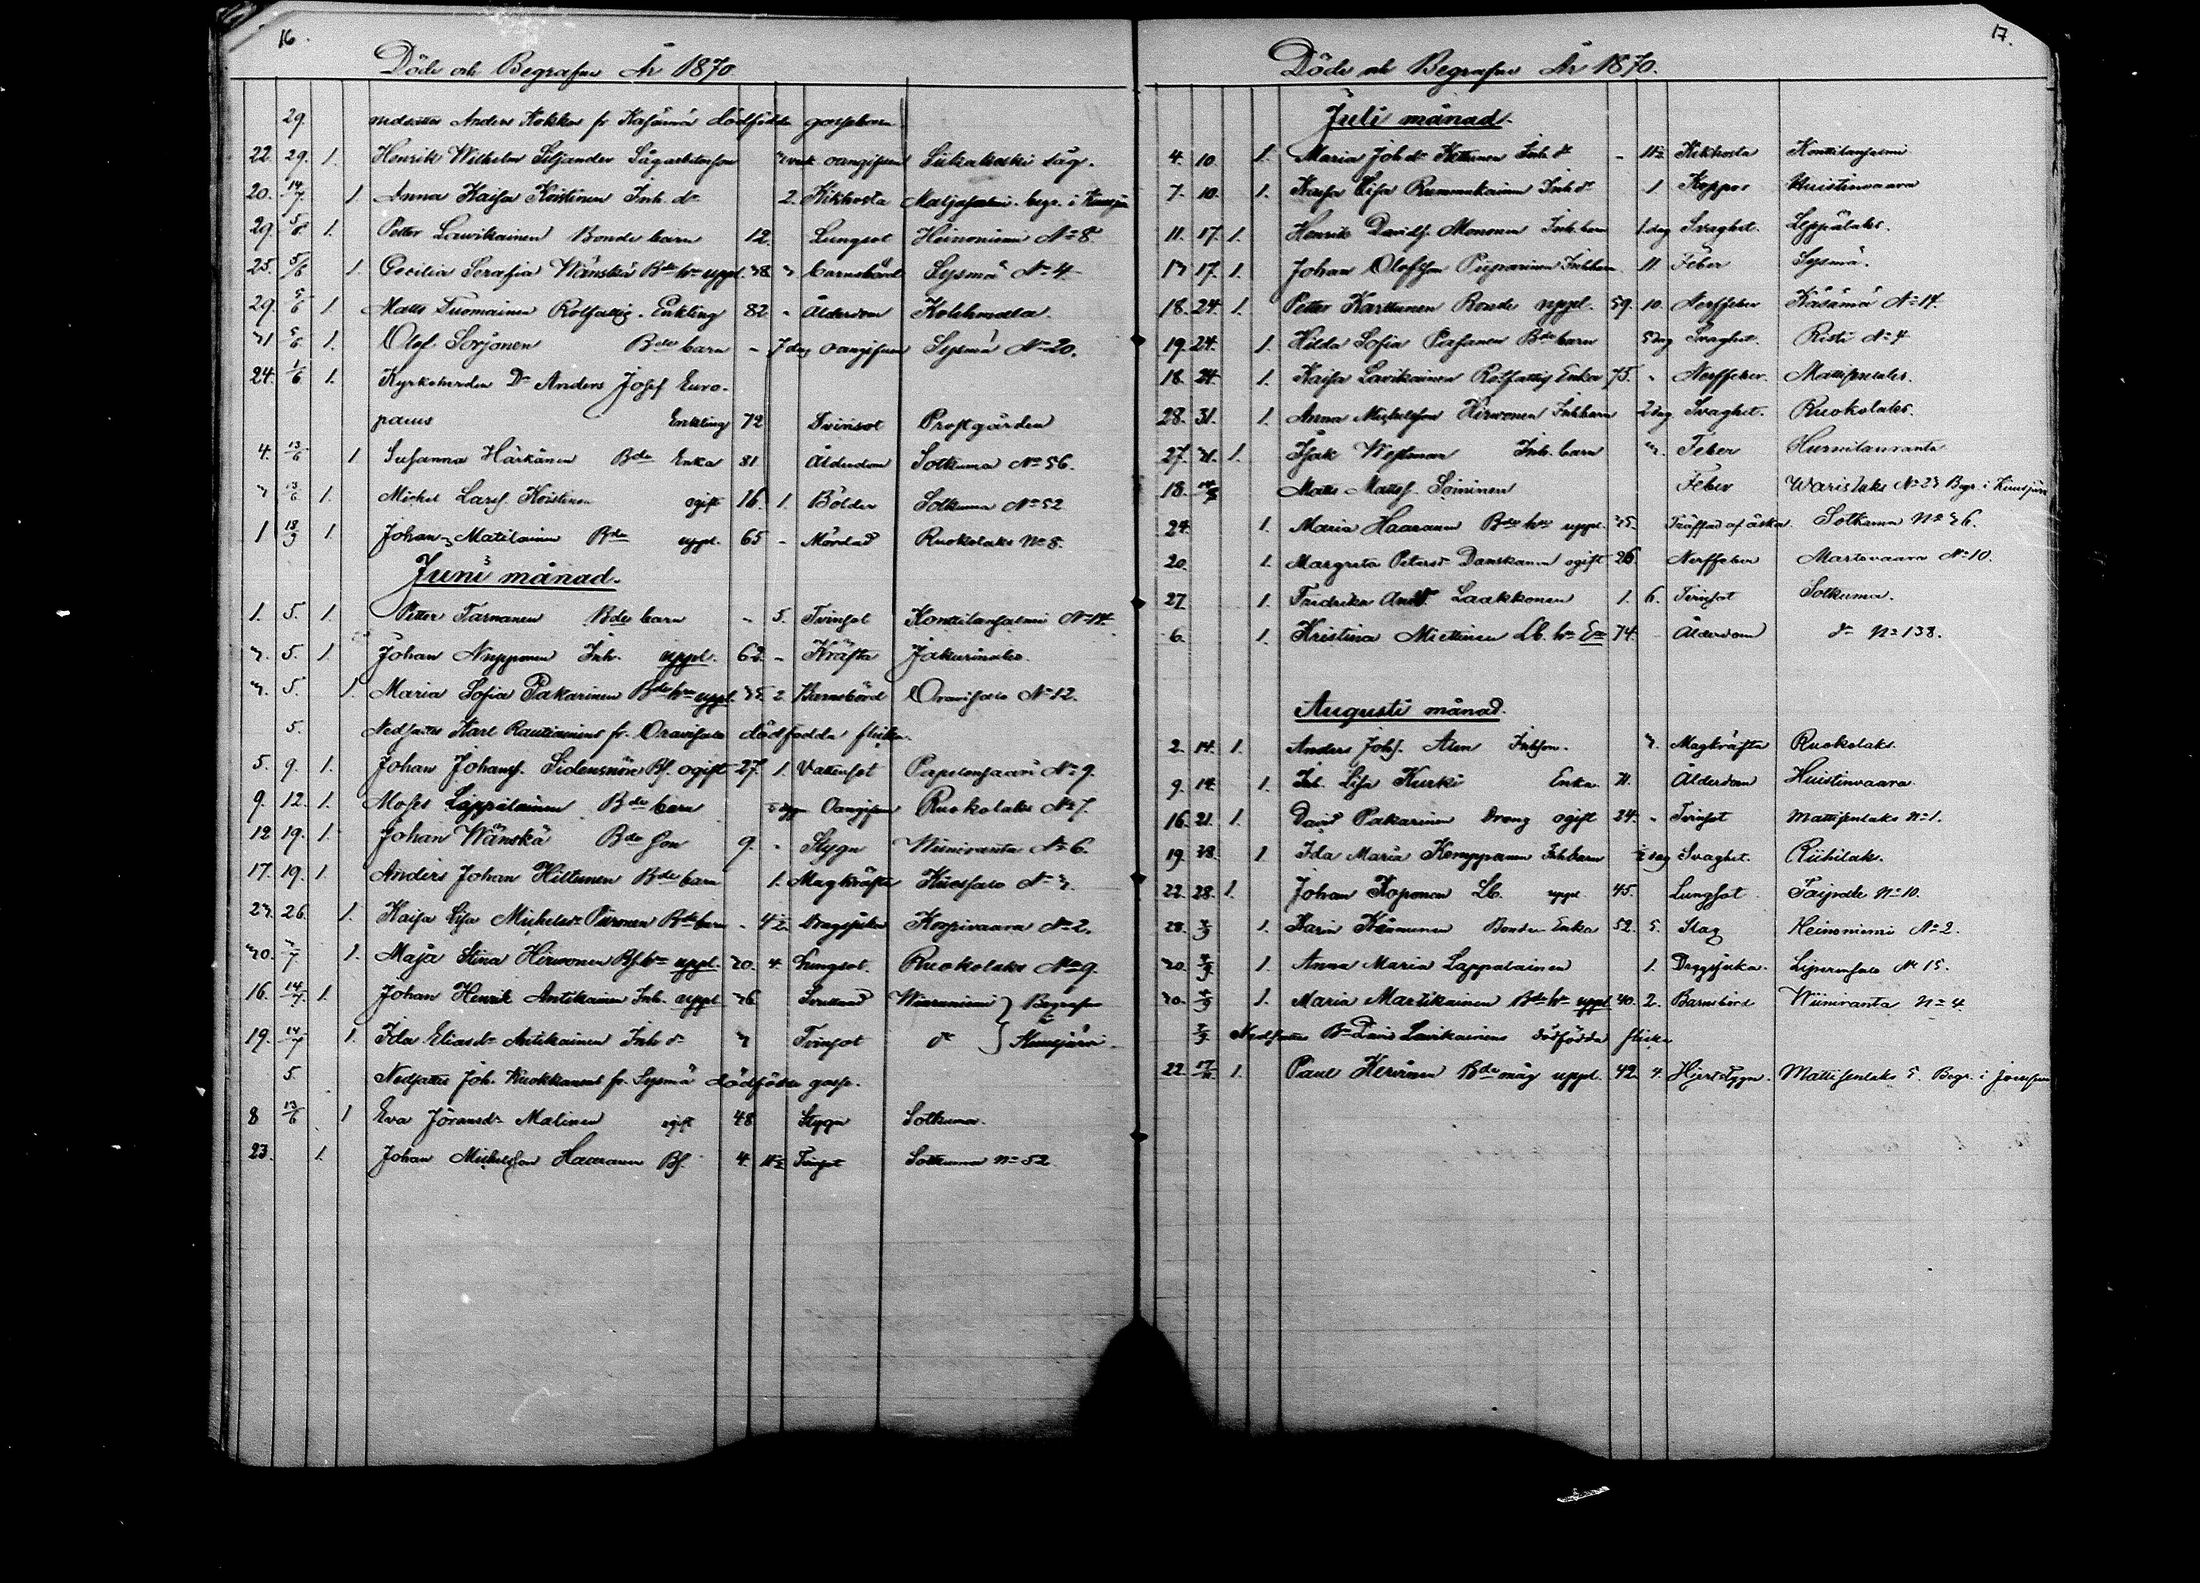 16.
Döde och Begrafne År 1870
29. nedsattes Anders Kokkos fr Käsämä dödfödda gossebarn
22. 29. 1. Henrik Wilhelm Siljander Sågarbetarson 3 veck oangifven Siikakoski såg.
20. 14/7. 1 Anna Kaisa Koistinen Inh. dr 2. Kikhosta Maljasalmi begr. i Kuusjärvi
29. 5/6. 1. Petter Lavikainen Bonde barn 12. Lungsot Heinoniemi No 8.
25. 5/6 1. Cecilia Serafia Wänskä Bde hu uppl. 38 3 barnsbörd Sysmä No 4
29. 5/6 1 Matts Tuomainen Rotfattig. Enkling 82 - Ålderdom Kolehmala.
31 5/6 1. Olof Sorjonen Bde barn - 7 dag oangifven Sysmä No 20.
24. 1/6 1. Kyrkoherden Dr Anders Josef Euro-
paeus Enkling 72 Tvinsot Prostgården
4. 13/6 1 Susanna Härkönen Bde Enka 81 Ålderdom Sotkuma No 56.
3 13/6 1. Michel Larss. Koistinen ogift 16. 1. Bölder Sotkuma No 52
1 18/9 1. Johan Matilainen Bde uppl. 65 - Mördad Ruokolaks No 8.
Juni månad.
1. 5. 1. Petter Tarnanen Bde barn - 5. Tvinsot Konttilansalmi No 14.
3. 5. 1. Johan Nupponen Inh. uppl. 62. - Kräfta Jakurinaho
3. 5. 1. Maria Sofia Pakarinen Bde hu uppl. 35 2. Barnsbörd Oravisalo No 12.
5. Nedsattes Karl Rautiainens fr. Oravisalo dödfödda flicka.
5. 9. 1. Johan Johanss. Sidensnöre Bs. ogift 27. 1. Vattusot Papelonsaari No 9.
9. 12. 1. Moses Lappalainen Bde barn Oangifven Ruokolaks No 7.
12 19. 1. Johan Wänskä Bde Son 9. - Stygn Wiiniranta No 6.
17. 19. 1. Anders Johan Hiltunen Bde barn 1. Magkräfta Kuussalo No 3.
23. 26. 1. Kaisa Lisa Michelsdr Piironen Bde barn - 4 1/2 Dragsjuka Korpivaara No 2.
30. 3/7 1. Maja Stina Hirvonen Bs. hu uppl. 20. 4. Lungsot. Ruokolaks No 9.
16. 14/7. 1. Johan Henrik Antikainen Inh. uppl 36. Wiurunniemi } Begrafne
19. 14/7 1. Ida Eliasdr Antikainen Inh dr 3 Tvinsot do } Kuusjärvi
5. Nedsattes Joh. Kuokkanens fr. Sysmä dödfödde gosse.
8 13/6 1 Eva Jöransdr Malinen ogift 48 Stygn Sotkuma.
23. 1. Johan Michelsson Haaranen Bs. 4. 11 1/2 Tvinsot Sotkuma No 52
17.
Döde och Begrafne År 1870.
Juli månad.
4. 10. 1. Maria Joh dr Kettunen Inh dr - 11 1/2 Kikhosta Konttilansalmi
7. 10. 1. Kaisa Lisa Rummukainen Inh dr 1 Koppor Huistinvaara
11. 17. 1. Henrik Davids. Mononen Inh. barn 1 dag Svaghet. Leppälaks.
13 17. 1. Johan Olofsson Puparinen Inh barn 11 Feber Sysmä.
18. 24. 1. Petter Karttunen Bonde uppl. 59. 10. Nerffeber Käsämä No 14.
19. 24. 1. Hilda Sofia Piesanen Bde barn 5 dag Svaghet. Risti No 4
18 24. 1. Kaisa Lavikainen Rotfattig Enka 75. - Nerffeber. Mattisenlaks.
28. 31. 1. Anna Michelsson Hirvonen Inh barn 2 dag Svaghet. Ruokolaks.
27. 31. 1. Isak Westman Inh. barn 3. Feber Hurmilanranta
18. 14/8 Matts Mattss. Soininen Feber Warislaks No 23 Begr. i Kuusjärvi
24. 1. Maria Haaranen Bde hu uppl. 35. Träffad af åska. Sotkuma No 36.
20. 1. Margreta Petersdr Danskanen ogift 26 Nerffeber Martovaara No 10.
27. 1. Fredrika Andr. Laakkonen 1. 6. Tvinsot Sotkuma.
6. 1. Kristina Miettinen Lb. hu Ea 74. - Ålderdom do No 138.
Augusti månad.
2. 14. 1. Anders Johs. Alen Inh son. 3. Magkräfta Ruokolaks.
9. 14. 1. Inh. Lisa Kurki Enka 71. Ålderdom Huistinvaara.
16. 21. 1. David Pakarinen Dreng ogift 24. - Tvinsot Mattisenlaks No 1.
19. 28. 1. Ida Maria Kemppanen Inh barn 1/2 dag Svaghet. Riihilaks.
22. 28. 1. Johan Koponen Lb. uppl 45. Lungsot Taipale No 10.
28. 4/9 1. Karin Käimunen Bonde Enka 52. 5. Slag Heinoniemi No 2.
30. 4/9 1. Anna Maria Lappalainen 1. Dragsjuka. Liperinsalo No 15.
30. 4/9 1. Maria Martikainen Bde hu uppl 40. 2. Barnsbörd Wiiniranta No 4.
4/9 Nedsattes Bn David Lavikainens dödfödda flicka
22. 17/11 1. Paul Kervinen Bde måg uppl. 42. 4. Hjertstygn. Mattisenlaks 5. Begr. i Joensuu